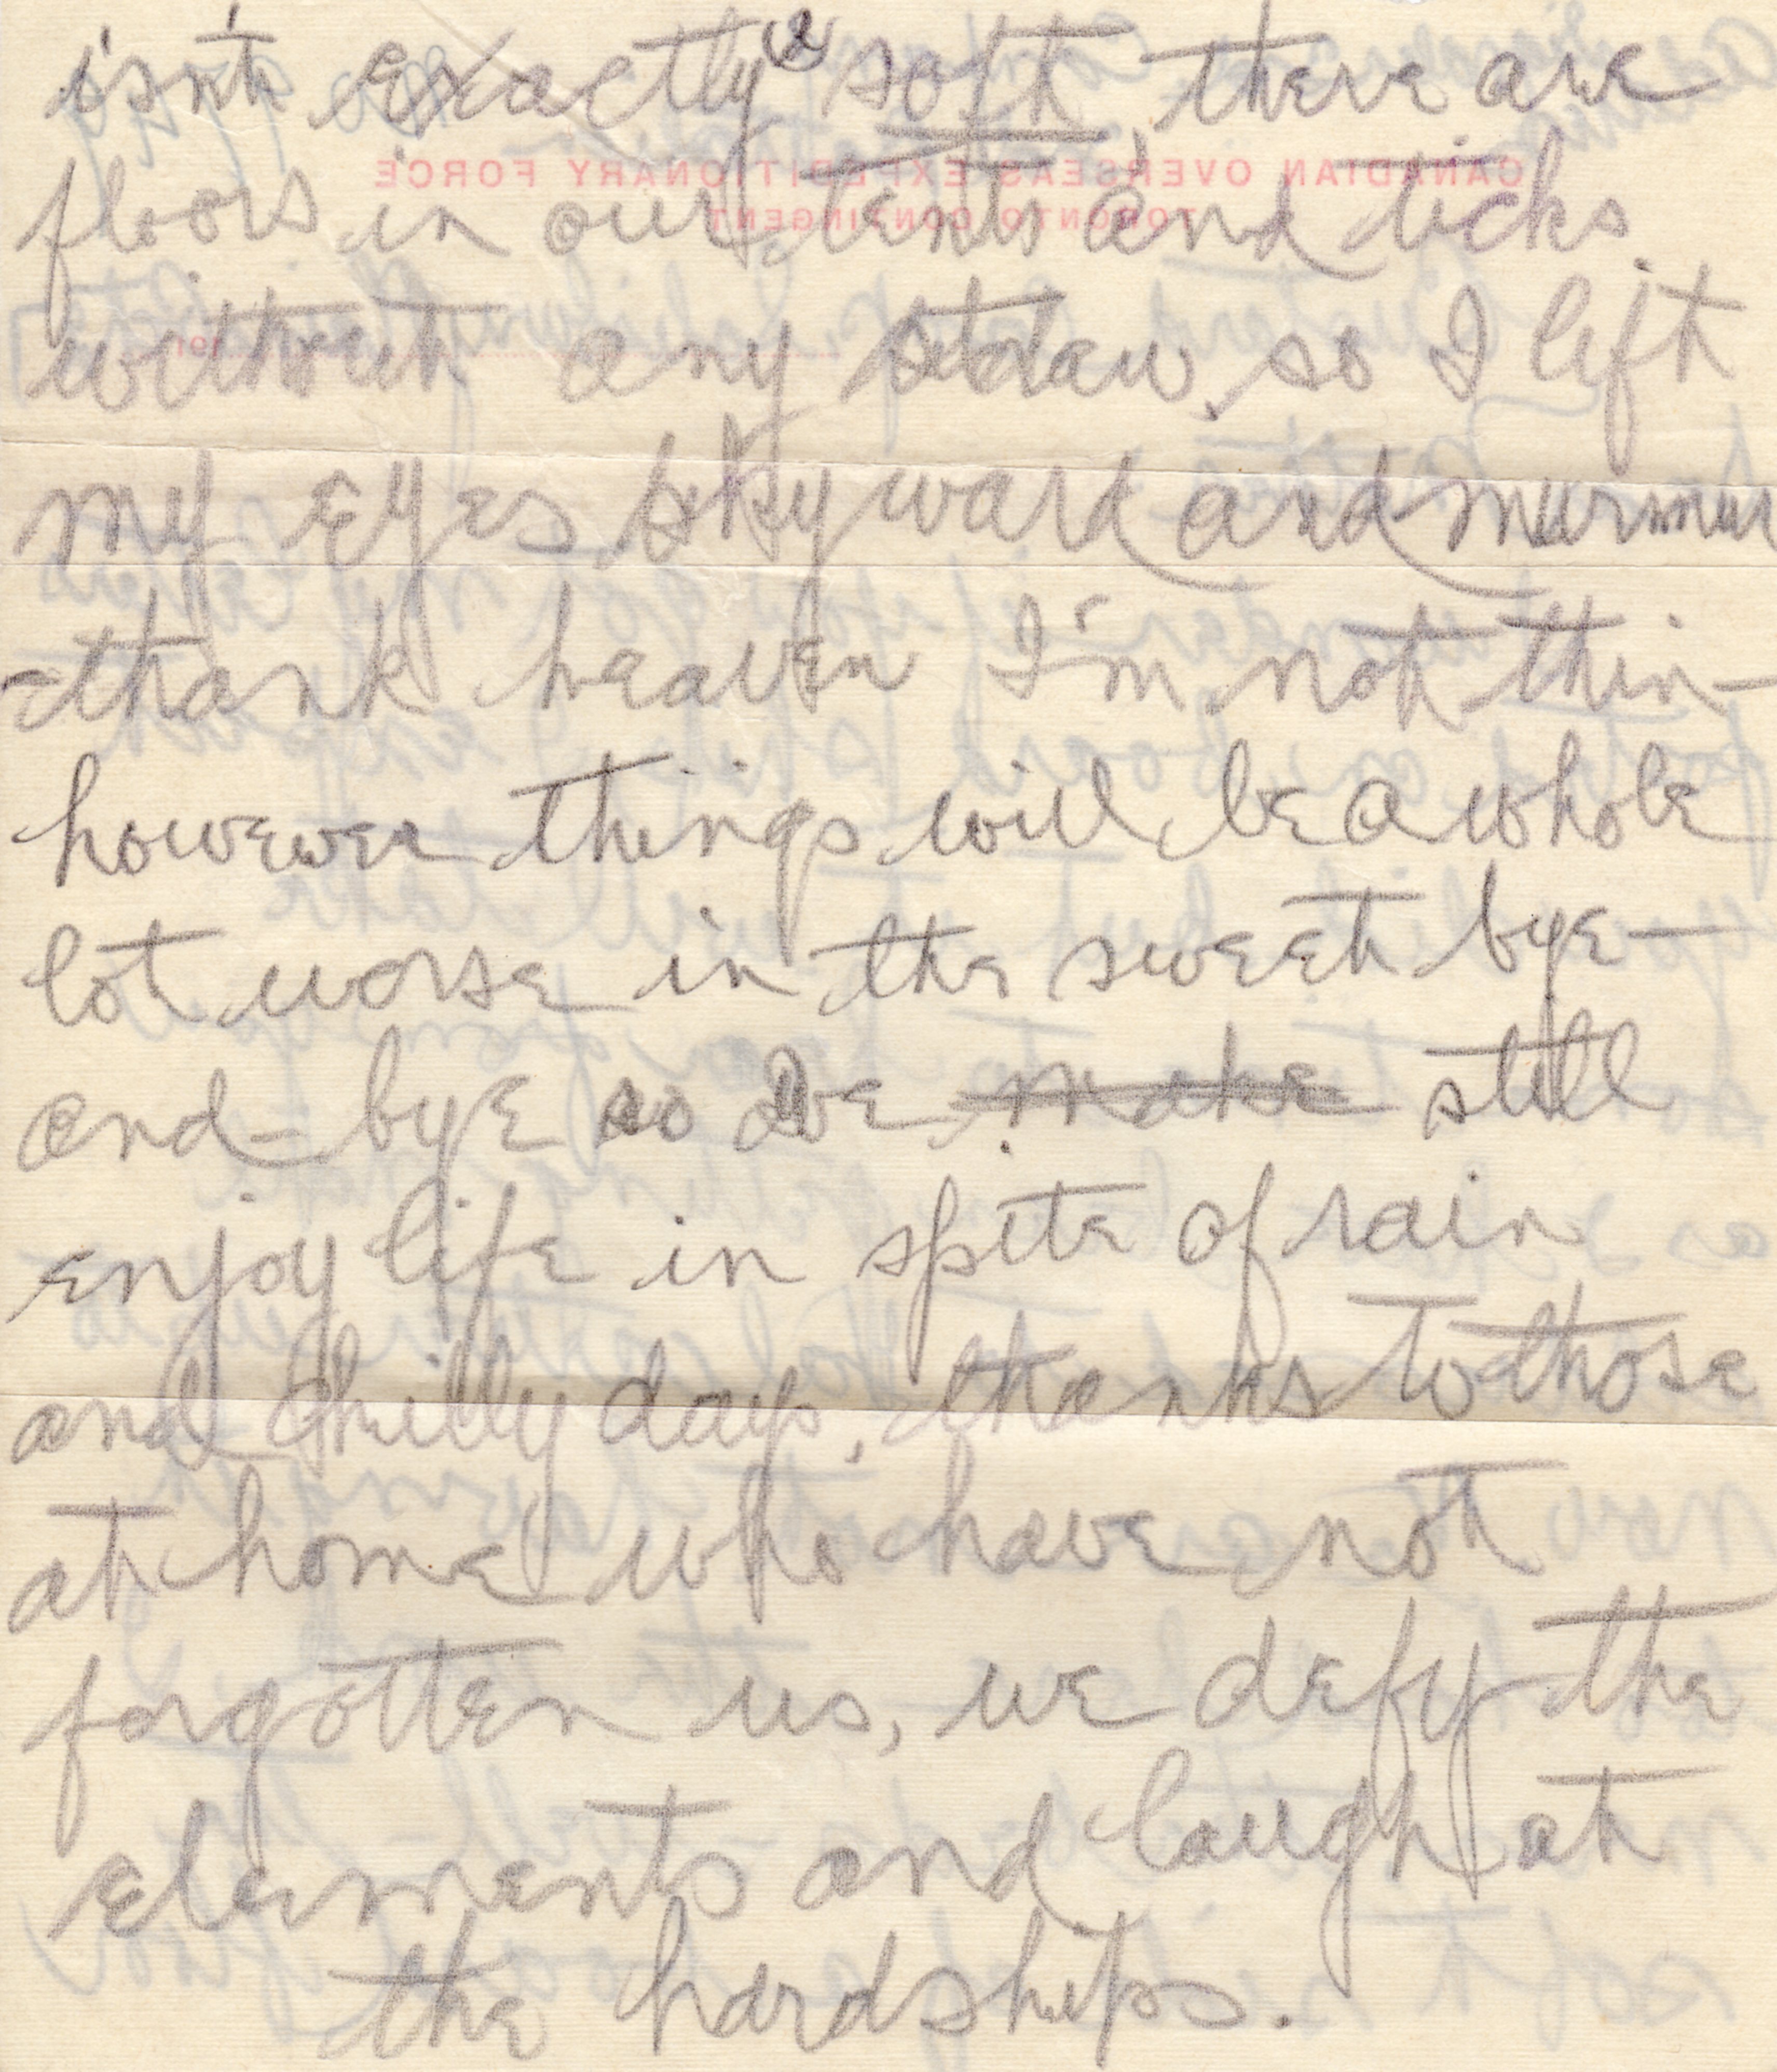 (2)
isn't exactly soft, there are
floors in our tents and ticks
without any straw, so I lift
my eyes skyward and murmur
-thank heaven I'm not thin-
however things will be a whole
lot worse in the sweet bye-
and-bye so we make still
enjoy life in spite of rain
and chilly days, thanks to those
at home who have not
forgotten us, we defy the
elements and laugh at
the hardships.
CANADIAN OVERSEAS EXPEDITIONARY FORCE
TORONTO CONTINGENT
191